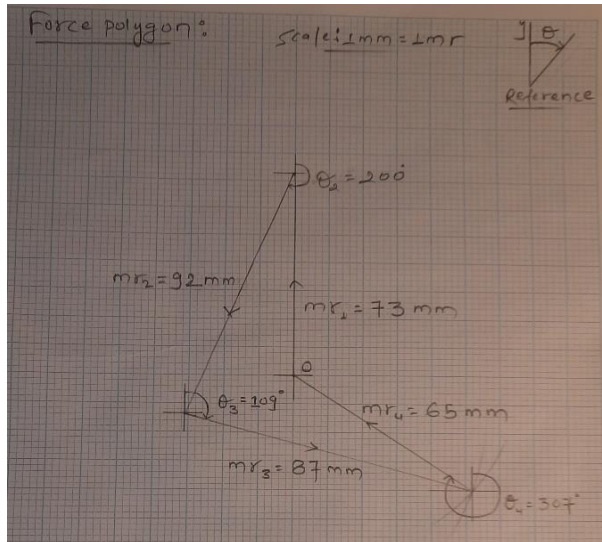 Force polygon:
Scale: 1mm = 1mr
y θ
Reference
θ₂ = 200°
mr₂ = 92 mm
mr₁ = 73 mm
O
θ₃ = 109°
mr₄ = 65 mm
mr₃ = 87 mm
θ₄ = 307°